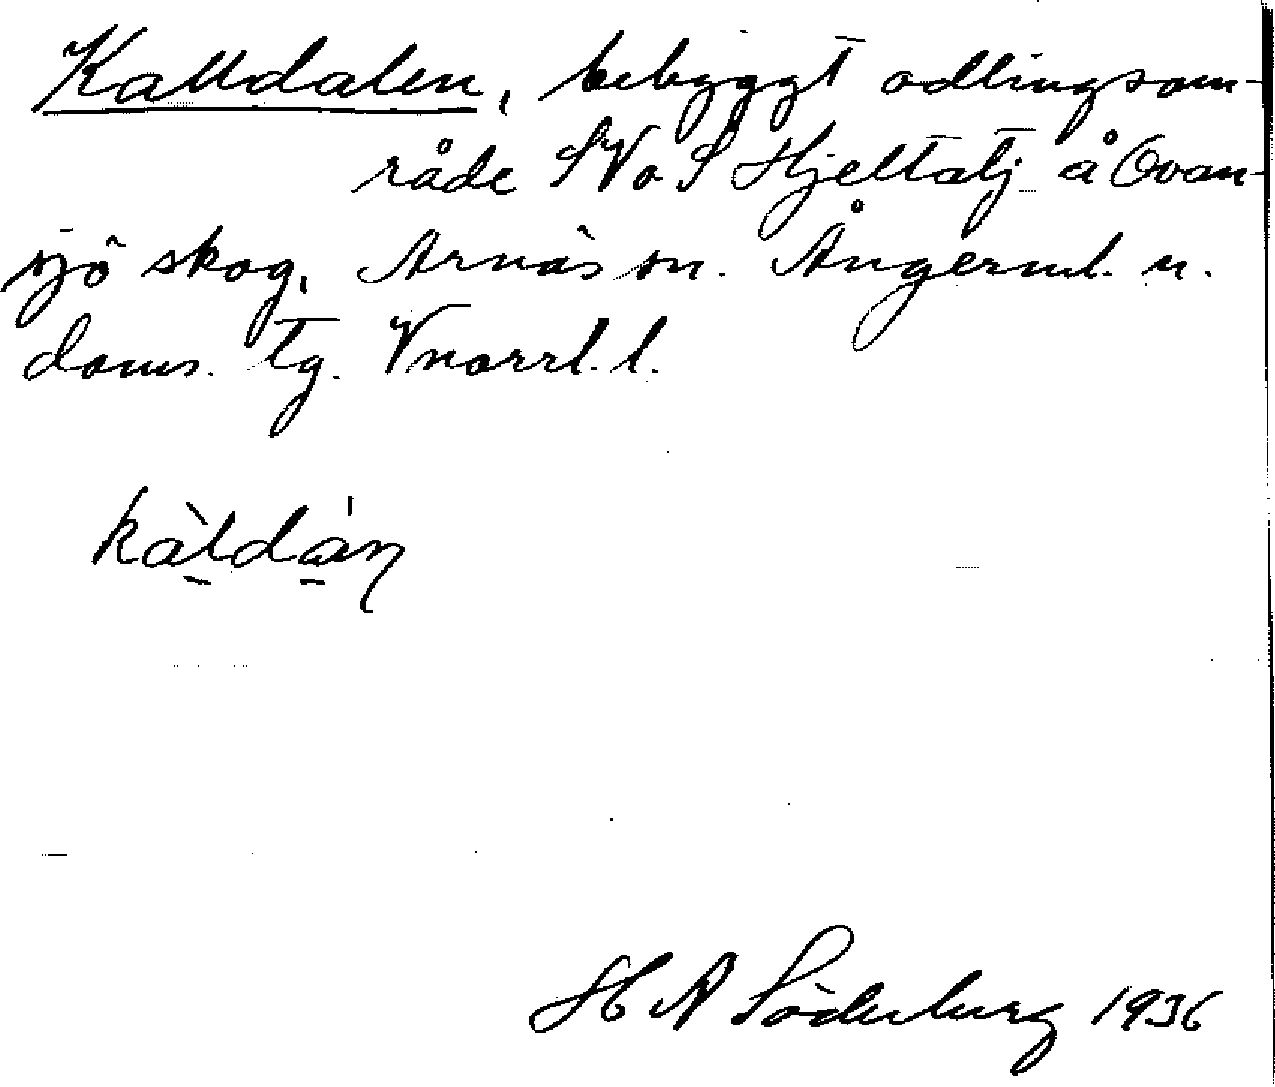 Kalldalen, bebyggt odlingsom-
råde SV o S Hjeltatj å Ovan-
sjö skog, Arnäs sn. Ångerml. n.
doms. tg. Vnorrl. l.
kàldàn
H A Söderberg 1936